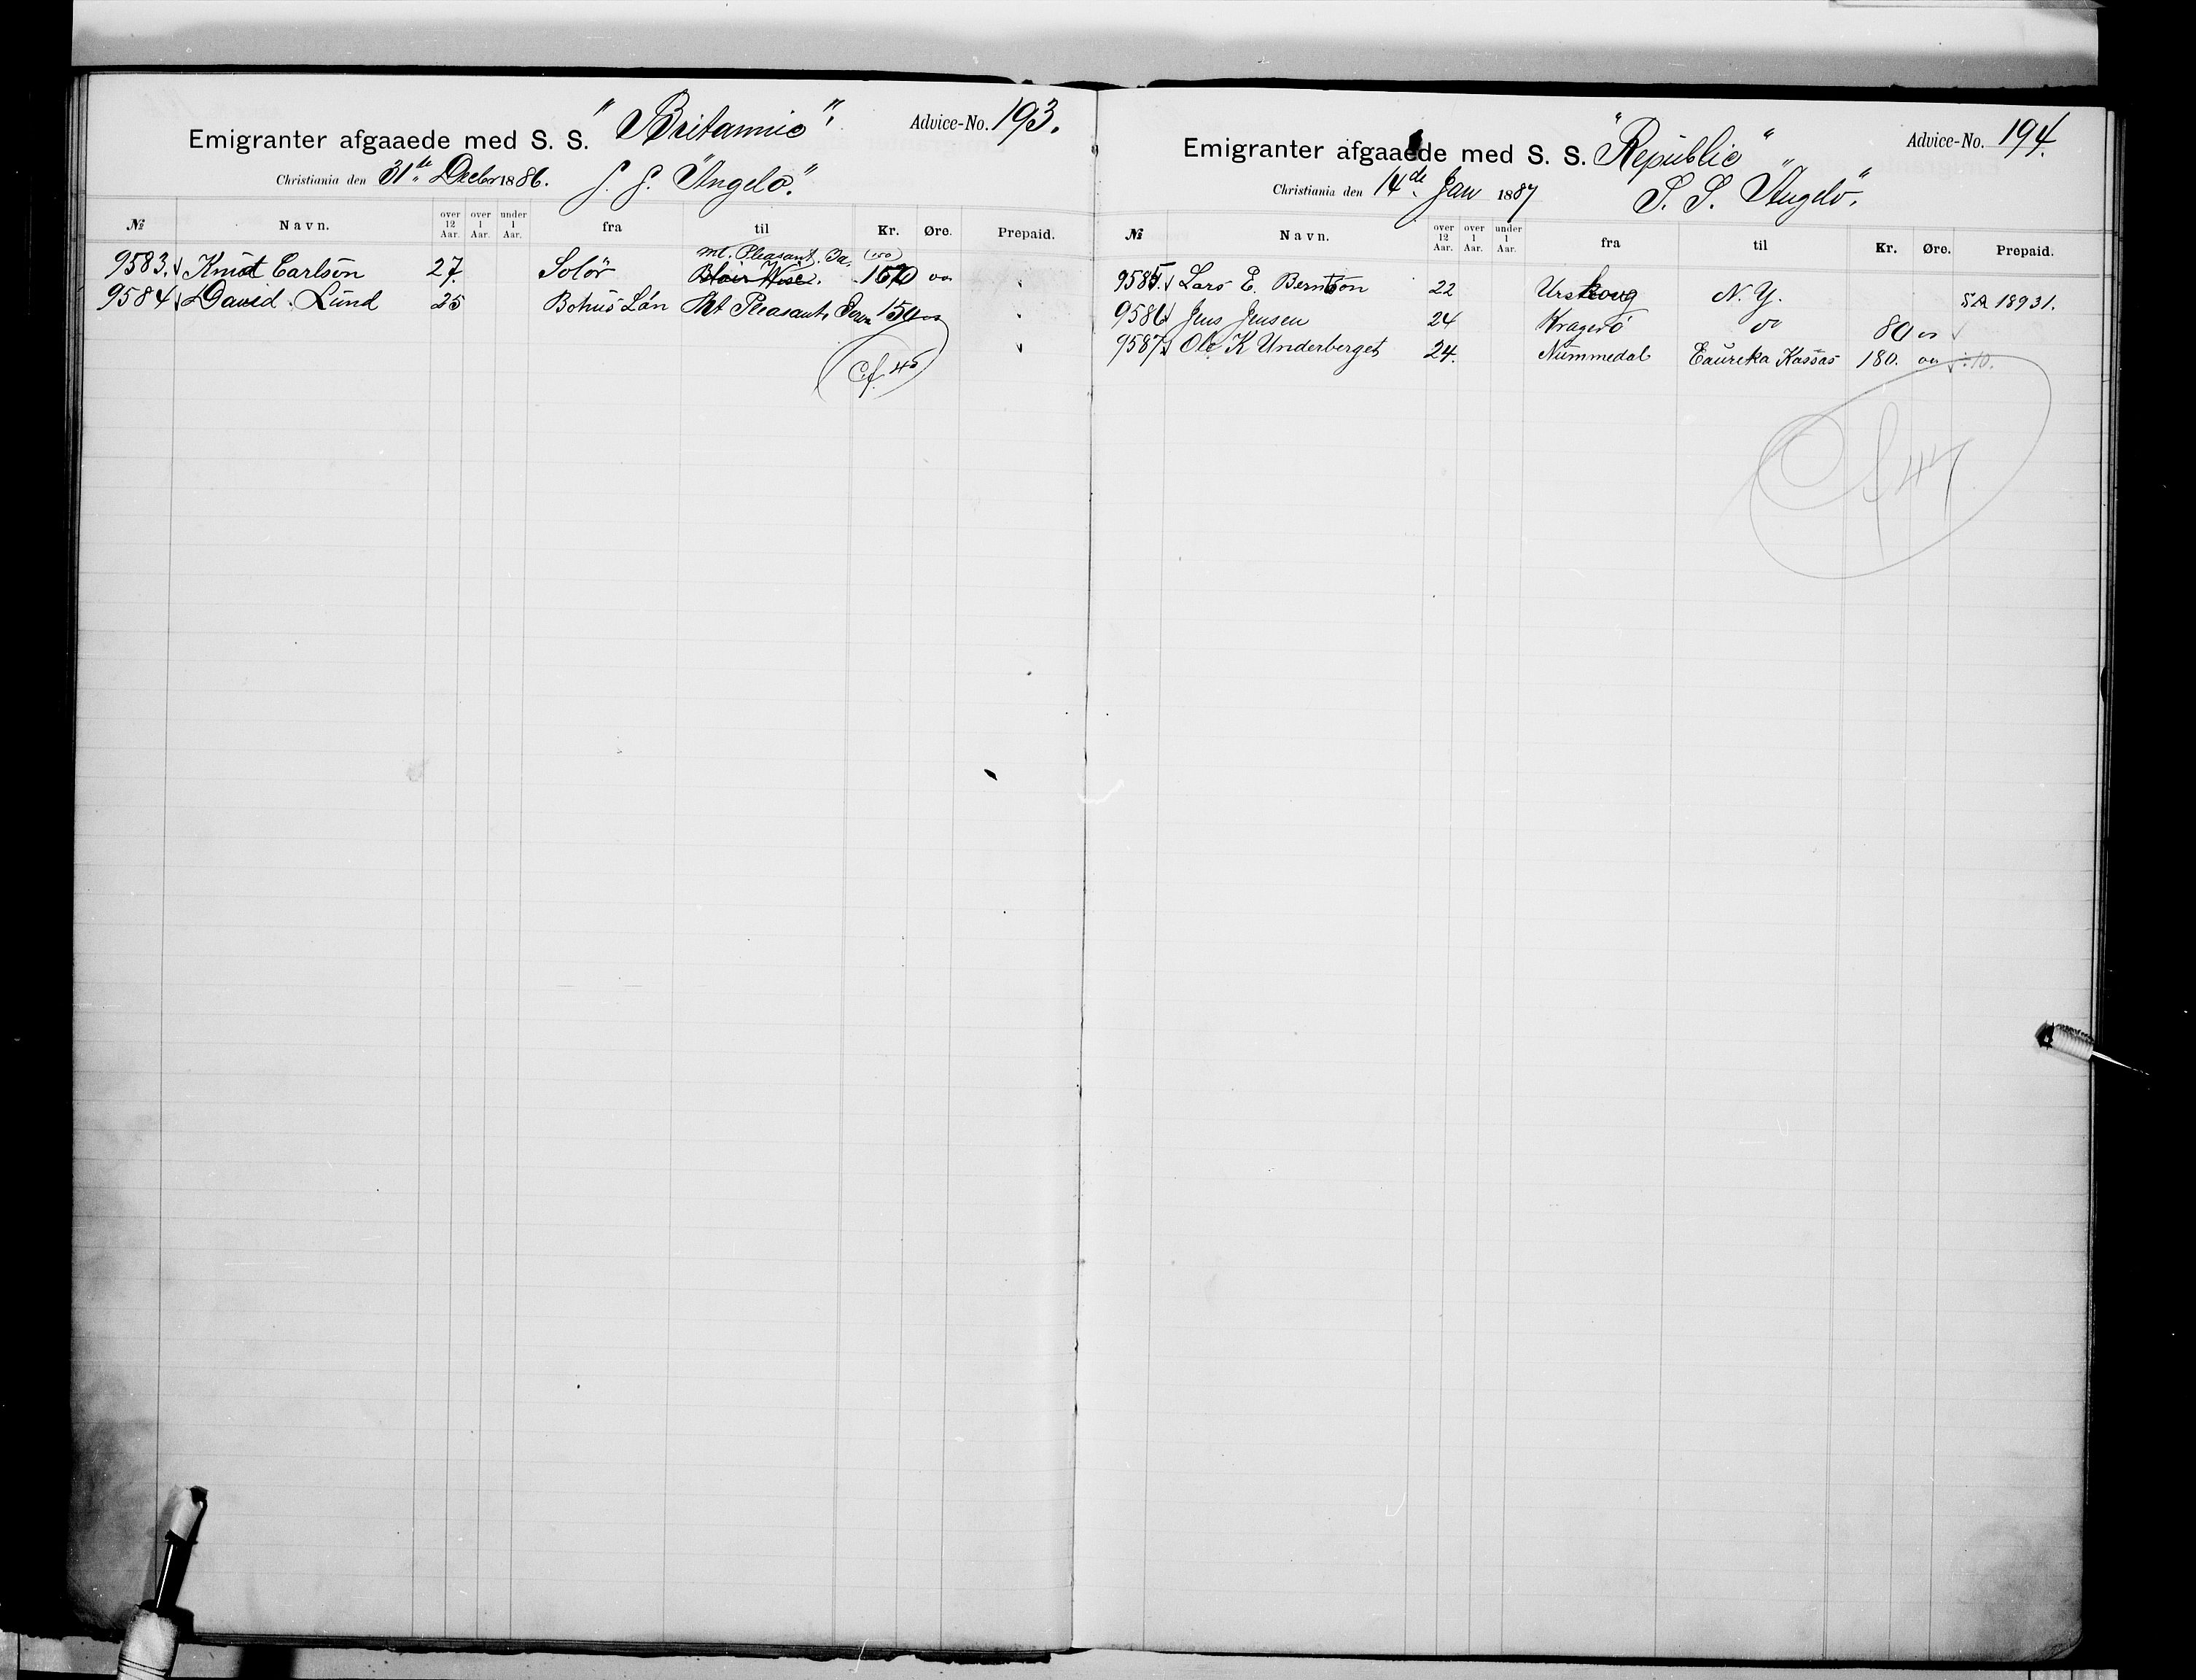 Emigranter afgaaede med S. S. "Britannic". Advice-No. 193.
Christiania den 31te Decbr 1886. S. S. "Angelo."
№ Navn. over 12 Aar. over 1 Aar. under 1 Aar. fra til Kr. Øre. Prepaid.
Mt. Pleasant. (150)
9583. Knut Carlson 27. Solör Blair Wisc. 00
9584 David Lund 25 Bohus Län Mt Pleasant, 150 00
Cf. 45
Emigranter afgaaede med S. S. "Republic" Advice-No. 194.
Christiania den 14de Jan 1887 S. S. "Angelo".
№ Navn. over 12 Aar. over 1 Aar. under 1 Aar. fra til Kr. Øre. Prepaid.
9585. Lars E. Berntson 22 Urskoug N. Y. 18931.
9586 Jens Jensen 24 Kragerö do 80 00
9587 Ole K Underberget 24. Nummedal Eaureka Kassas 180. 00 ÷10.
Cf 47